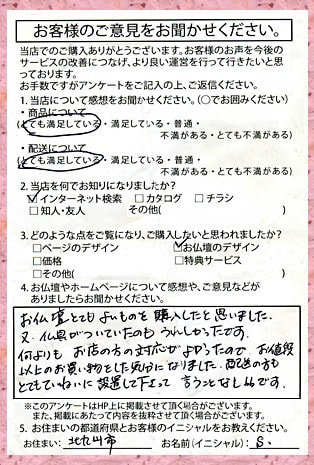 お客様のご意見をお聞かせください。
当店でのご購入ありがとうございます。お客様のお声を今後の
サービスの改善につなげ、より良い運営を行って行きたいと思
っております。
お手数ですがアンケートをご記入の上、ご返信ください。
1. 当店について感想をお聞かせください。(○でお囲みください)
・商品について
(とても満足している・満足している・普通・
不満がある・とても不満がある)
・配送について
(とても満足している・満足している・普通・
不満がある・とても不満がある)
2. 当店を何でお知りになりましたか?
☑インターネット検索 □カタログ □チラシ
□知人・友人 その他( )
3. どのような点をご覧になり、ご購入したいと思われましたか?
□ページのデザイン ☑お仏壇のデザイン
□価格 □特典サービス
□その他( )
4. お仏壇やホームページについて感想や、ご意見などが
ありましたらお聞かせください。
お仏壇とてもよいものを購入したと思いました。
又、仏具がついていたのもうれしかったです。
何よりもお店の方の対応がよかったので、お値段
以上のお買い物をした気分になりました。配送の方も
とてもていねいに設置して下さって言うことなしです。
※このアンケートはHP上に掲載させて頂く場合がございます。
また、掲載にあたって内容を抜粋させて頂く場合がございます。
5. お住まいの都道府県とお客様のイニシャルをお教えください。
お住まい: 北九州市 お名前(イニシャル) S.